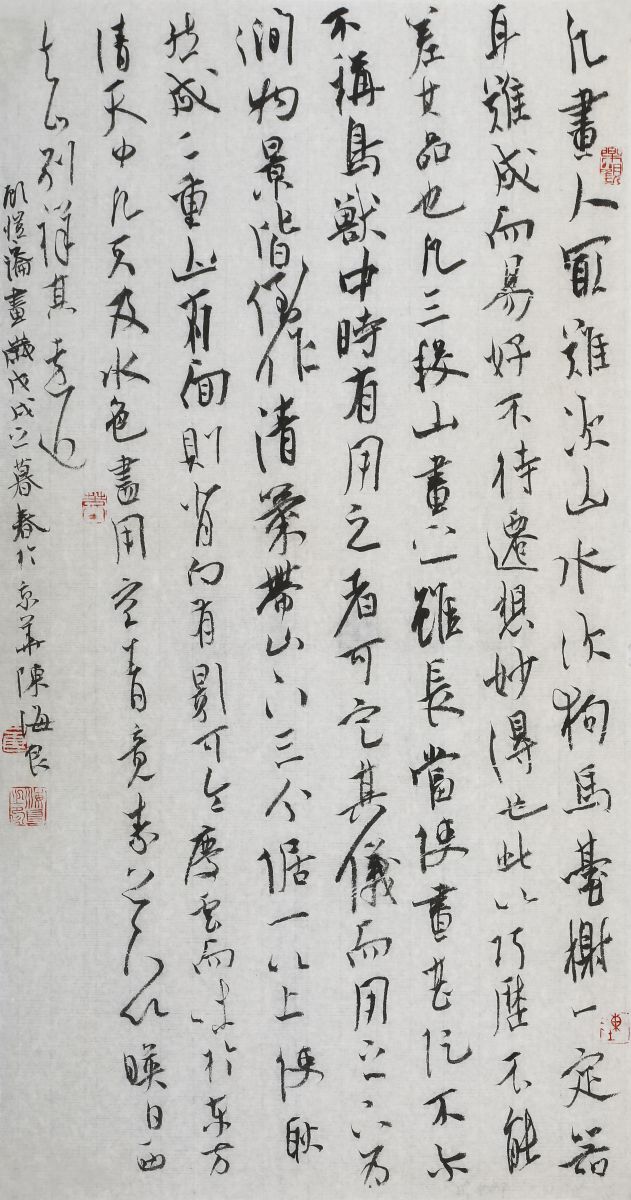 凡畫人最難次山水次狗馬臺榭一定器
耳難成而易好不待遷想妙得也此以巧歷不能
差其品也凡三段山畫之雖長當使畫甚促不尔
不稱鳥獸中時有用之者可定其儀而用之下為
澗物景皆倒作清氣帶山下三分倨一以上使耿
然成二重山有面則背向有影可令慶云而吐於东方
清天中凡天及水色盡用空青竟素上下以暎日西
去山別詳其遠近
愷論畫歲戊戌之暮春於京華陳海良